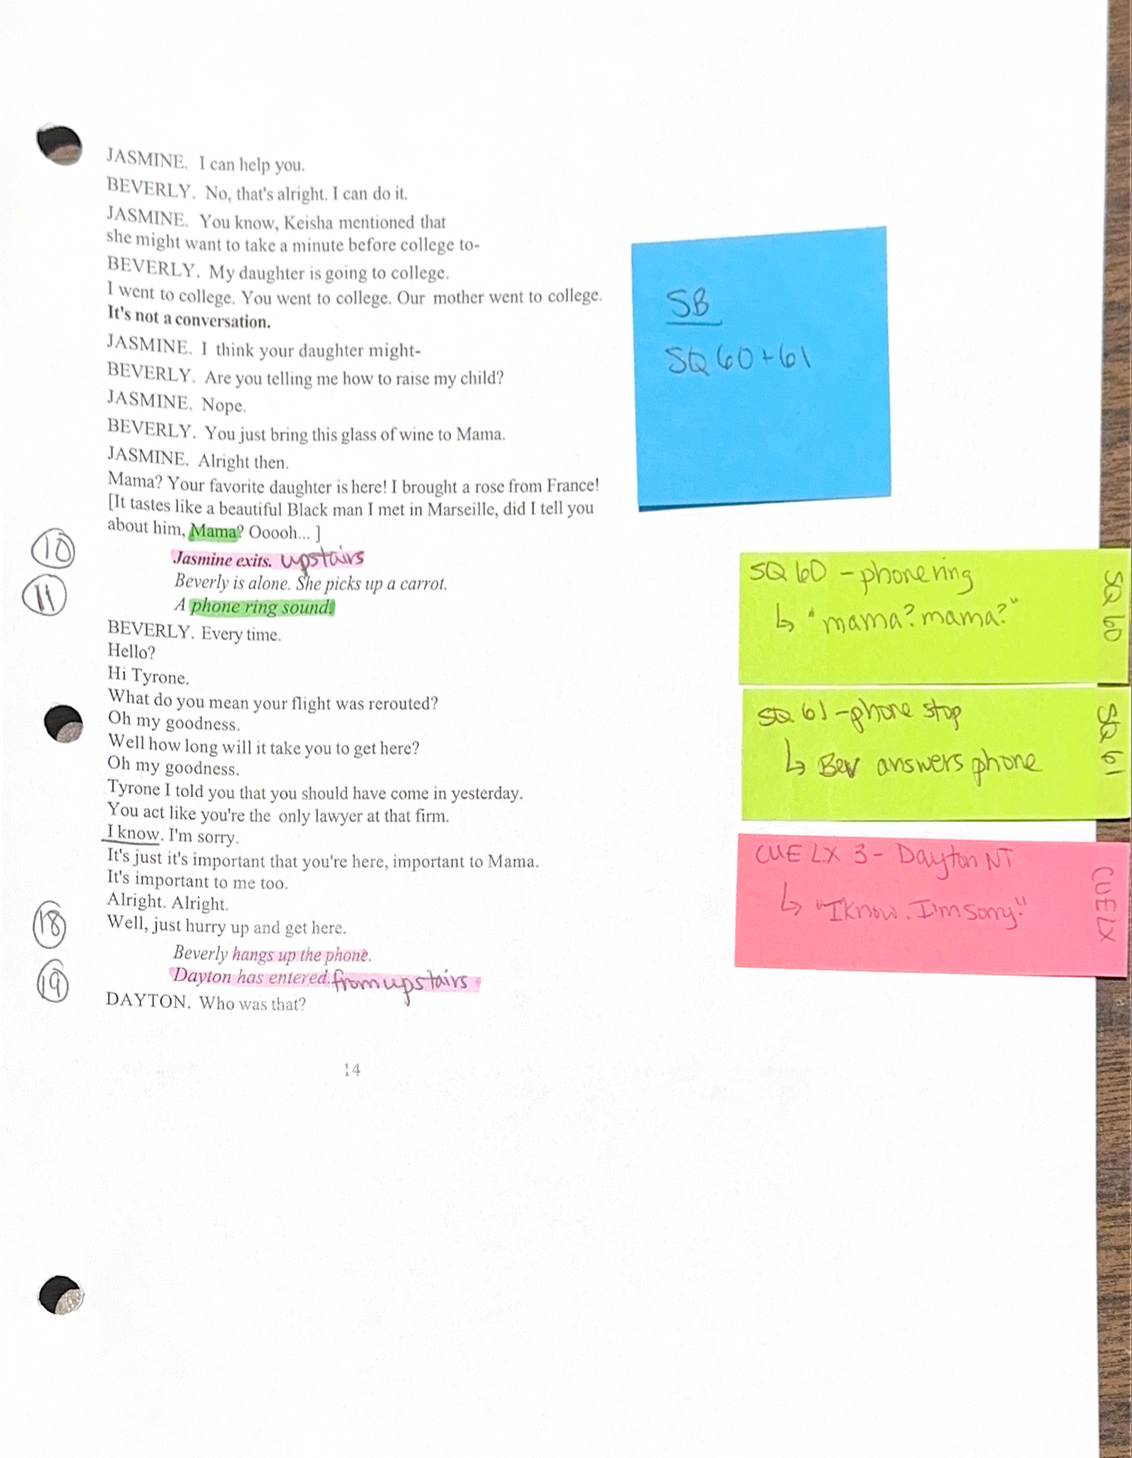 JASMINE. I can help you.
BEVERLY. No, that's alright. I can do it.
JASMINE. You know, Keisha mentioned that
she might want to take a minute before college to-
BEVERLY. My daughter is going to college.
I went to college. You went to college. Our mother went to college.
It's not a conversation.
JASMINE. I think your daughter might-
BEVERLY. Are you telling me how to raise my child?
JASMINE. Nope.
BEVERLY. You just bring this glass of wine to Mama.
JASMINE. Alright then.
Mama? Your favorite daughter is here! I brought a rose from France!
[It tastes like a beautiful Black man I met in Marseille, did I tell you
about him, Mama? Ooooh... ]
10 Jasmine exits. upstairs
Beverly is alone. She picks up a carrot.
11 A phone ring sound.
BEVERLY. Every time.
Hello?
Hi Tyrone.
What do you mean your flight was rerouted?
Oh my goodness.
Well how long will it take you to get here?
Oh my goodness.
Tyrone I told you that you should have come in yesterday.
You act like you're the only lawyer at that firm.
I know. I'm sorry.
It's just it's important that you're here, important to Mama.
It's important to me too.
Alright. Alright.
18 Well, just hurry up and get here.
Beverly hangs up the phone.
19 Dayton has entered. from upstairs
DAYTON. Who was that?
14
SB
SQ 60+61
SQ 60 - phone ring
↳ "mama? mama?"
SQ 60
SQ 61 - phone stop
↳ Bev answers phone
SQ 61
CUE LX 3 - Dayton NT
↳ "I know. I'm sorry."
CUE LX